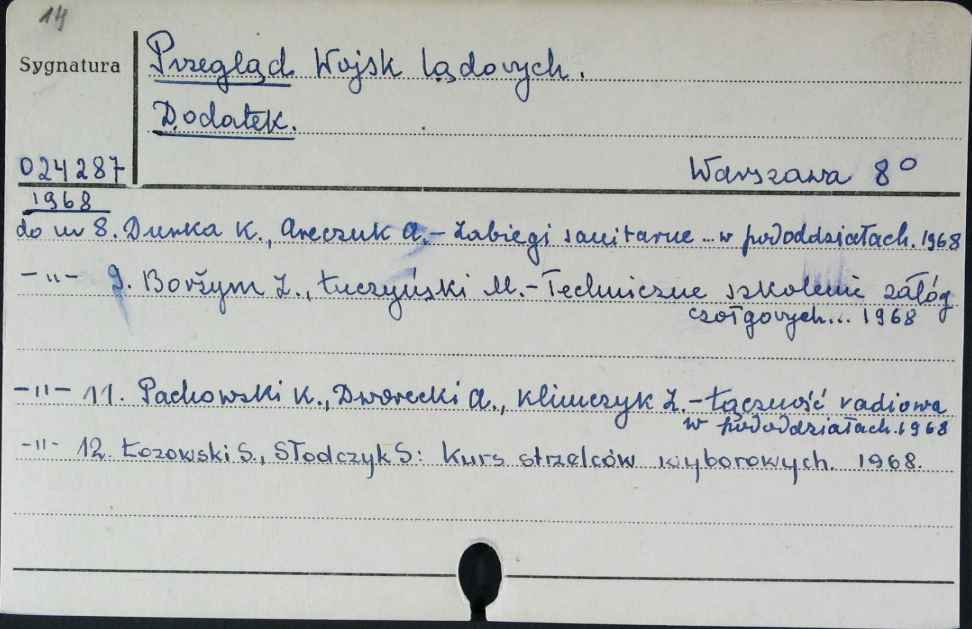 14
Sygnatura
Przegląd Wojsk Lądowych.
Dodatek.
024287
Warszawa 8°
1968
do nr 8. Dunka K., Areczuk A. - Zabiegi sanitarne ... w pododdziałach. 1968
-"- 9. Boržym Z., Łuczyński M. - Techniczne szkolenie załóg
czołgowych... 1968
-"- 11. Pachowski K., Dworecki A., Klimczyk Z. - Łączność radiowa
w pododdziałach. 1968
-"- 12. Łozowski S., Słodczyk S: Kurs strzelców wyborowych. 1968.